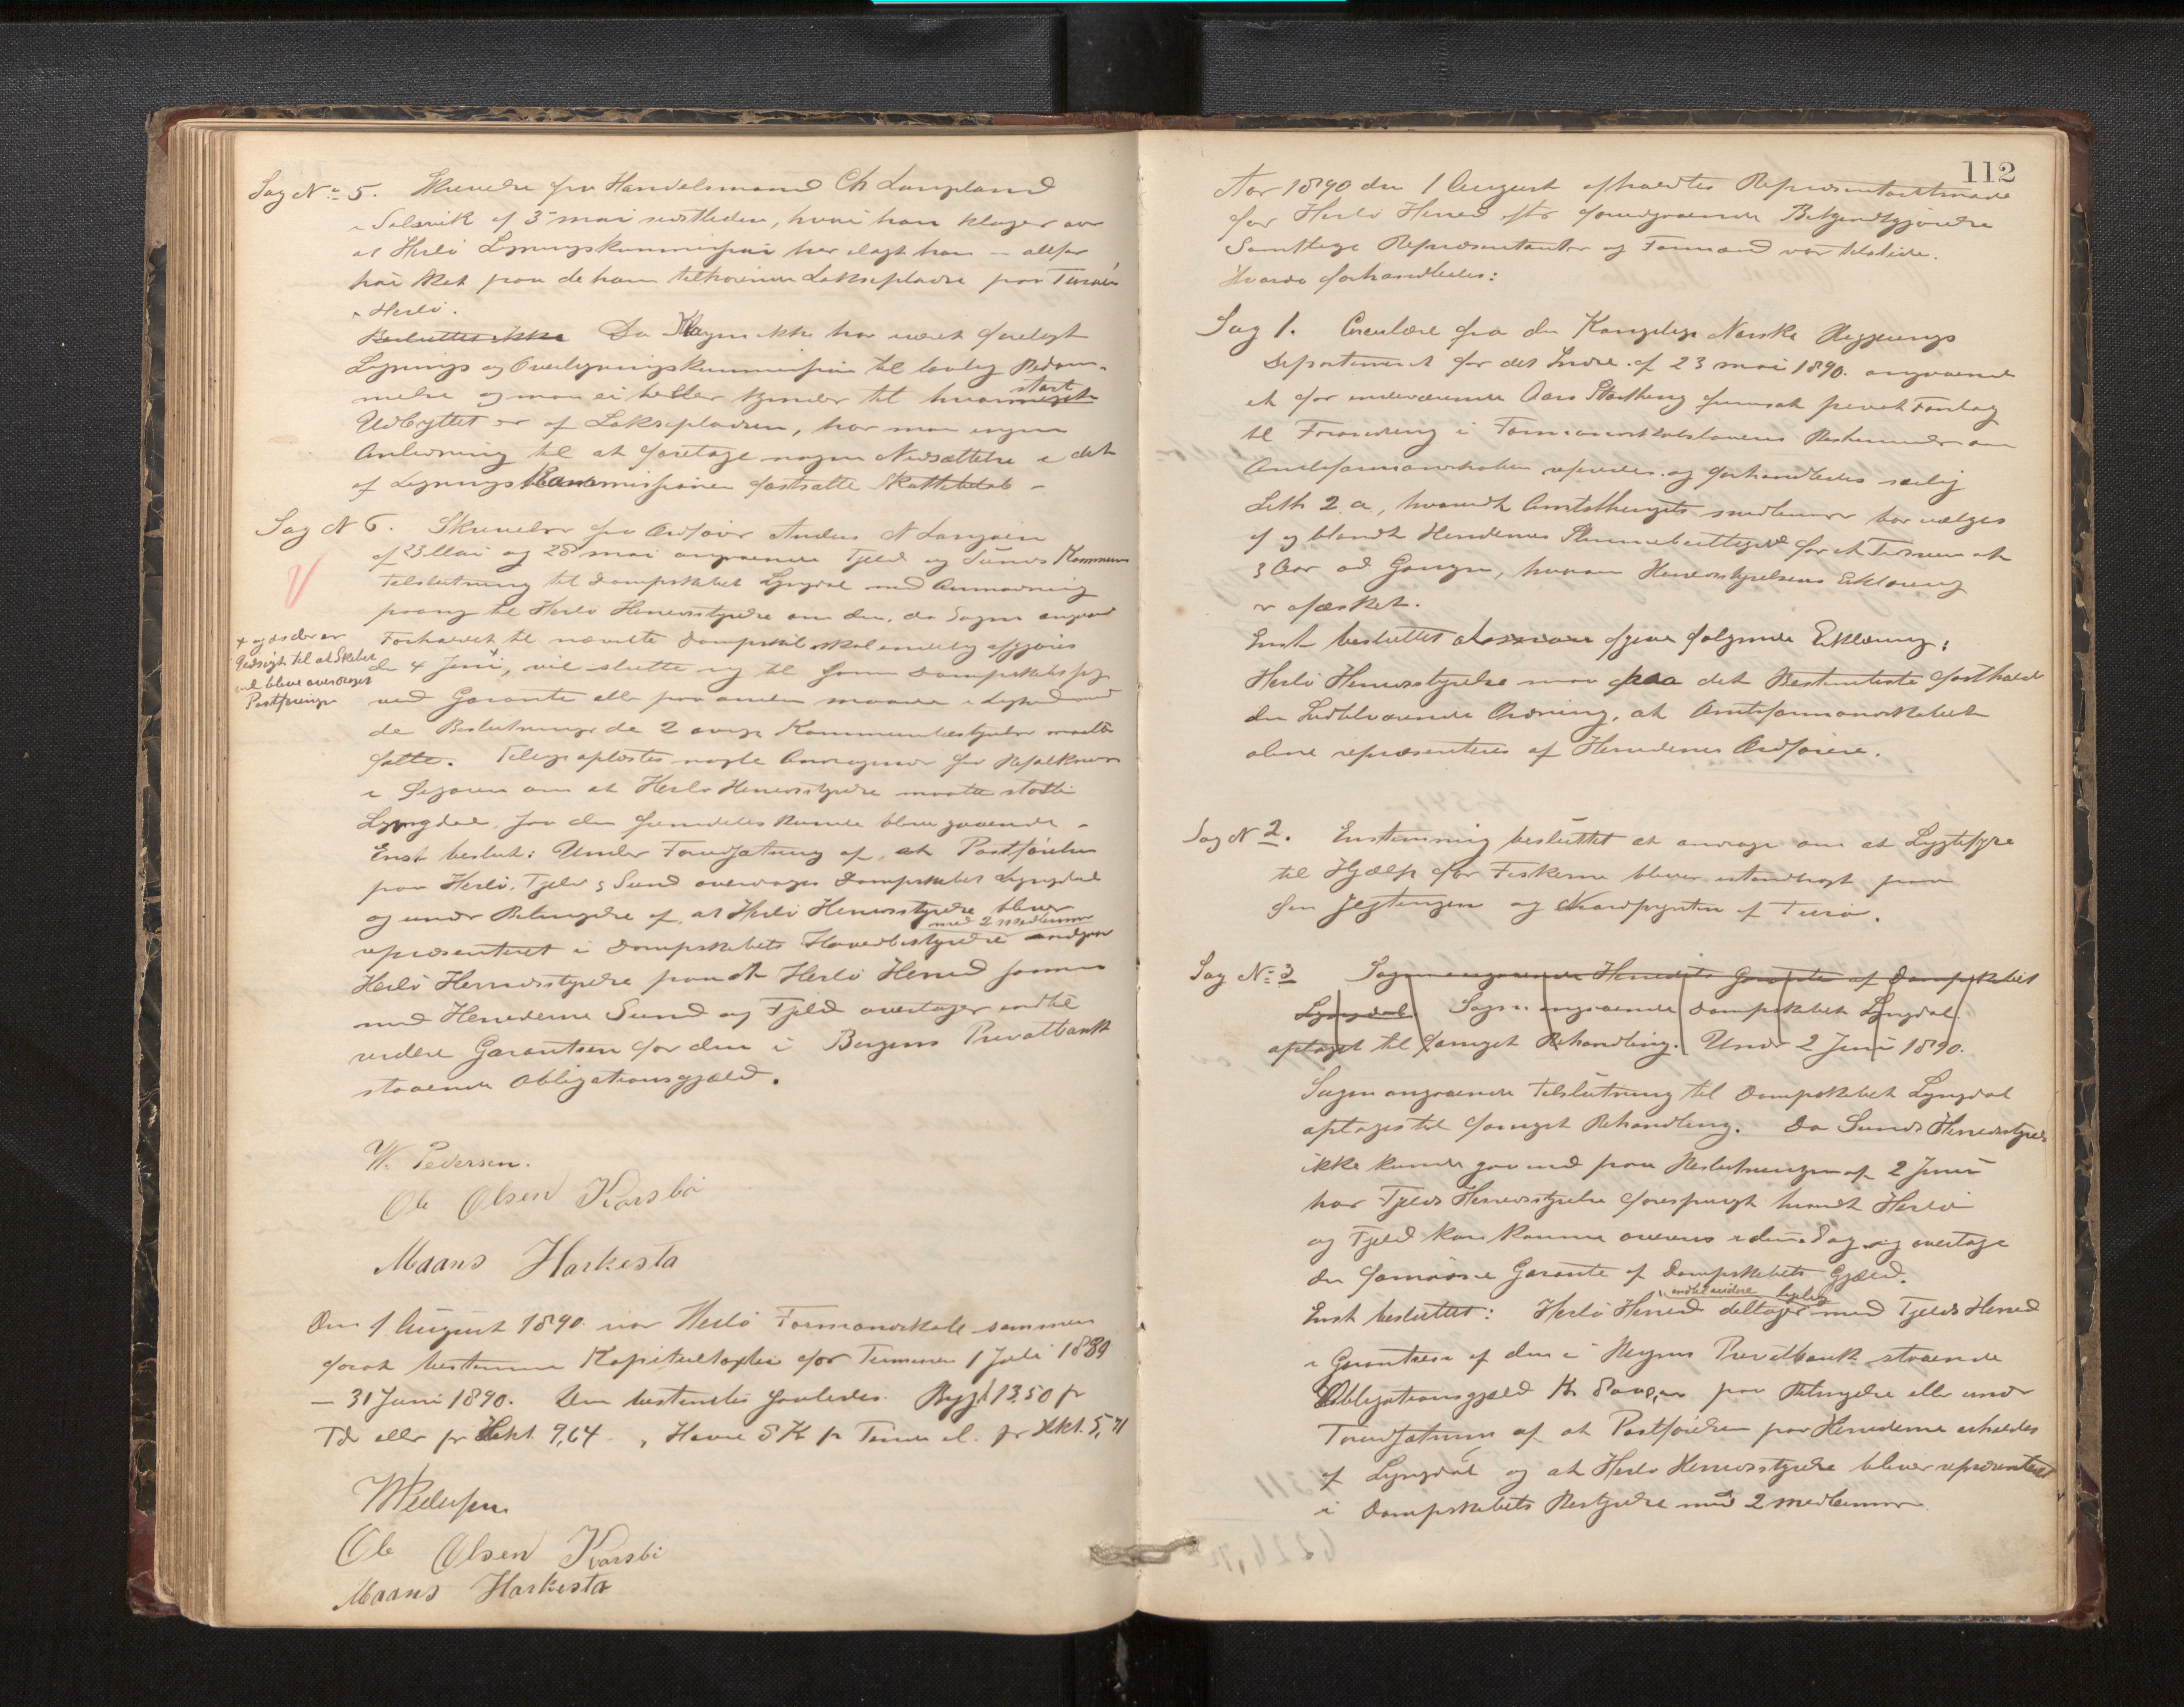 Sag No 5. Skrivelse fra Handelsmand Ch Langeland
i Solsvik af 3 mai sidstleden, hvori han klager over
at Herlö Ligningskommission har ilagt ham allfor
höi Skat paa de ham tilhörende Laksepladse paa Turöen
i Herlö.
Besluttet ikke Da Klagen ikke har været forelagt
Lignings og Overligningskommission til lovlig Bedöm-
melse og man ei heller kjender til hvor meget stort
Udbyttet er af Laksepladsen, har man ingen
Anledning til at foretage nogen Nedsættelse i det
af Ligningskommissionen fastsatte Skattebeløb -
Sag N 6. Skrivelser fra Ordförer Anders N Langöen
af 23 Mai og 28 mai angaaende Fjeld og Sunds Kommuners
Tilslutning til Dampskibet Lyngdal med Anmodning
paany til Herlö Herredsstyrelse om den, da Sagen angaaende
Forholdet til nævnte Dampskib skal endelig afgjøres
+ og da der er
Udsigt til at Skibet
vil blive overdraget
Postføringen
den 4 Juni +, vil slutte sig til samme Dampskibsselskab
ved Garanti eller paa anden maade i Lighed med
de Beslutninger de 2 øvrige Kommunebestyrelser maatte
fatte. Tillige oplæstes nogle Andragender fra Beboere
i Øygaren om at Herlö Herredsstyrelse maatte støtte
Lyngdal, saa den fremdeles kunde blive gaaende -
Enst beslut: Under Forudsætning af, at Postførselen
paa Herlö, Fjeld & Sund overdrages Dampskibet Lyngdal
og under Betingelse af, at Herlö Herredsstyrelse bliver
med 2 medlemmer
repræsenteret i Dampskibets Hovedbestyrelse
Herlö Herredsstyrelse paa at Herlö Herred sammen
med Herrederne Sund og Fjeld overtager indtil
videre Garantien for den i Bergens Privatbank
staaende Obligationsgjæld.
W. Pedersen.
Ole Olsen Kårsbö
Maans Harkestad
Den 1 August 1890 var Herlö Formandskab sammen
forat bestemme Kapitelstaxter for Terminen 1 Juli 1889
- 31 Juni 1890. Den bestemtes saaledes. Byg 13,50 pr
Td eller pr Hekt. 9,64 . , Havre 8 K pr Tönne el. pr Hkt. 5,71
WPedersen
Ole Olsen Kårsbö
Maans Harkestad
112
Aar 1890 den 1 August afholdtes Repræsentantmøde
for Herlö Herred efter foregaaende Bekjendtgjørelse
Samtlige Repræsentanter og Formænd var tilstede.
Hvorda forhandledes:
Sag 1. Circulære fra den Kongelige Norske Regjerings
Departement for det Indre af 23 mai 1890. angaaende
et for indeværende Aars Storthing fremsat privat Forslag
til Forandring i Formandskabslovens Bestemmelser om
Amtsformandskabet refereredes og forhandledes særlig
Leth 2.a, hvorved Amtsthingets medlemmer bør vælges
af og blandt Herredernes Stemmeberettigede for et Tidsrum af
3 Aar ad Gangen, hvorom Herredsstyrelsens Erklæring
er afæsket.
Enst besluttet at afgive følgende Erklæring:
Herlö Herredsstyrelse maa paa det Bestemteste fastholde
den Indtilværende Ordning, at Amtsformandskabet
alene repræsenteres af Herredernes Ordførere.
Sag N 2. Enstemmig besluttet at andrage om at Lygtefyre
til Hjælp for Fiskerne bliver istandbragt paa
Sag No 3 Sagen angaaende Herredets Garanti af Dampskibet
Lyngdal. Sagen angaaende Dampskibet Lyngdal
optaget til fornyet Behandling. Under 2 Juni 1890.
Sagen angaaende Tilslutning til Dampskibet Lyngdal
optoges til fornyet Behandling. Da Sunds Herredsstyrelse
ikke kunde gaa ind paa Beslutningen af 2 Juni
har Fjelds Herredsstyrelse forespurgt hvorvidt Herlö
og Fjeld kan komme overens i denne Sag og overtage
den fornødne Garanti af Dampskibets Gjæld.
indtil videre
Enst besluttet: Herlö Herred deltager med Fjelds Herred
i Garantien af den i Bergens Privatbank staaende
Obligationsgjæld paa Betingelse eller under
Forudsætning af at Postførselen paa Herrederne erholdes
af Lyngdal og at Herlö Herredsstyrelse bliver repræsenteret
i Dampskibets Bestyrelse med 2 medlemmer.